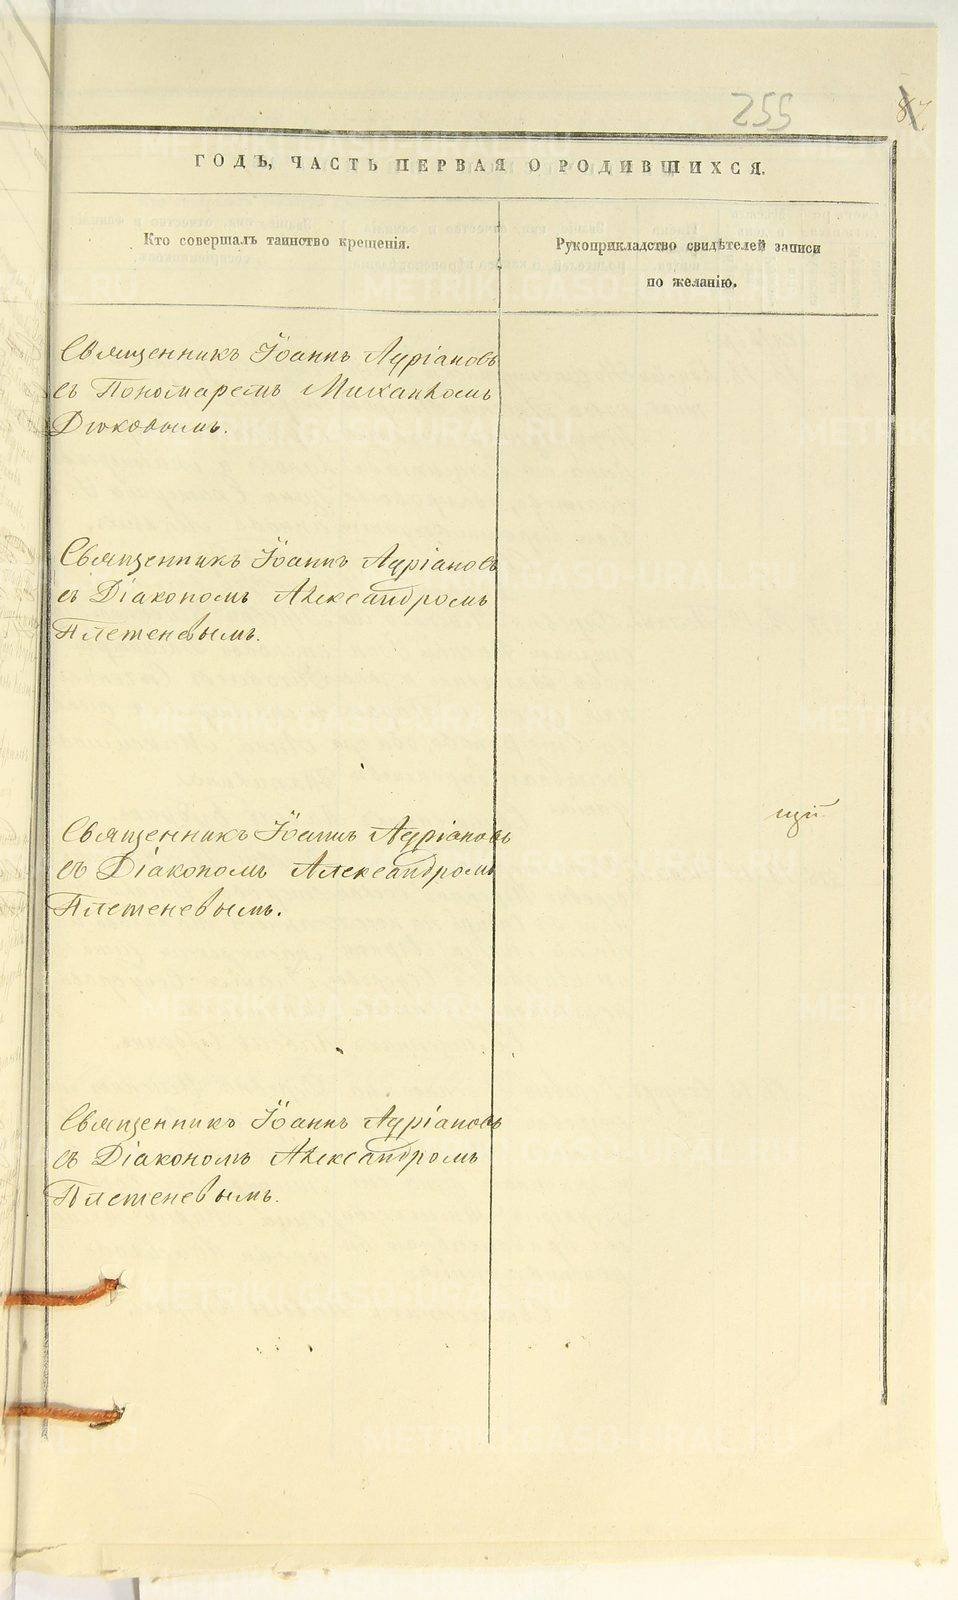 255
ГОДЪ, ЧАСТЬ ПЕРВАЯ О РОДИВШИХСЯ.
Кто совершалъ таинство крещенія.
Рукоприкладство свидѣтелей записи
по желанію.
Священникъ Іоаннъ Адріановъ
съ Пономаремъ Михаиломъ
Дюковымъ.
Священникъ Іоаннъ Адріановъ
съ Діакономъ Александромъ
Плетеневымъ.
Священникъ Іоаннъ Адріановъ
съ Діакономъ Александромъ
Плетеневымъ.
Священникъ Іоаннъ Адріановъ
съ Діакономъ Александромъ
Плетеневымъ.
METRIKI.GASO-URAL.RU